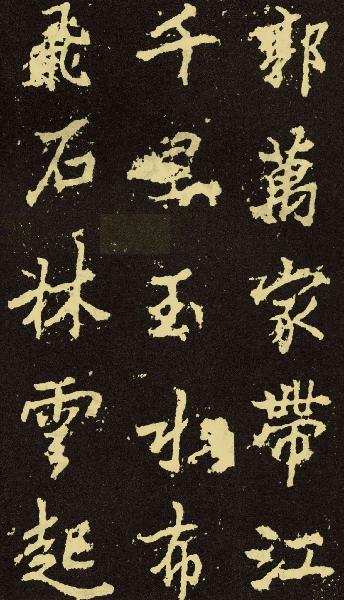 郭萬家帶江
千里玉水布
飛石林雲起